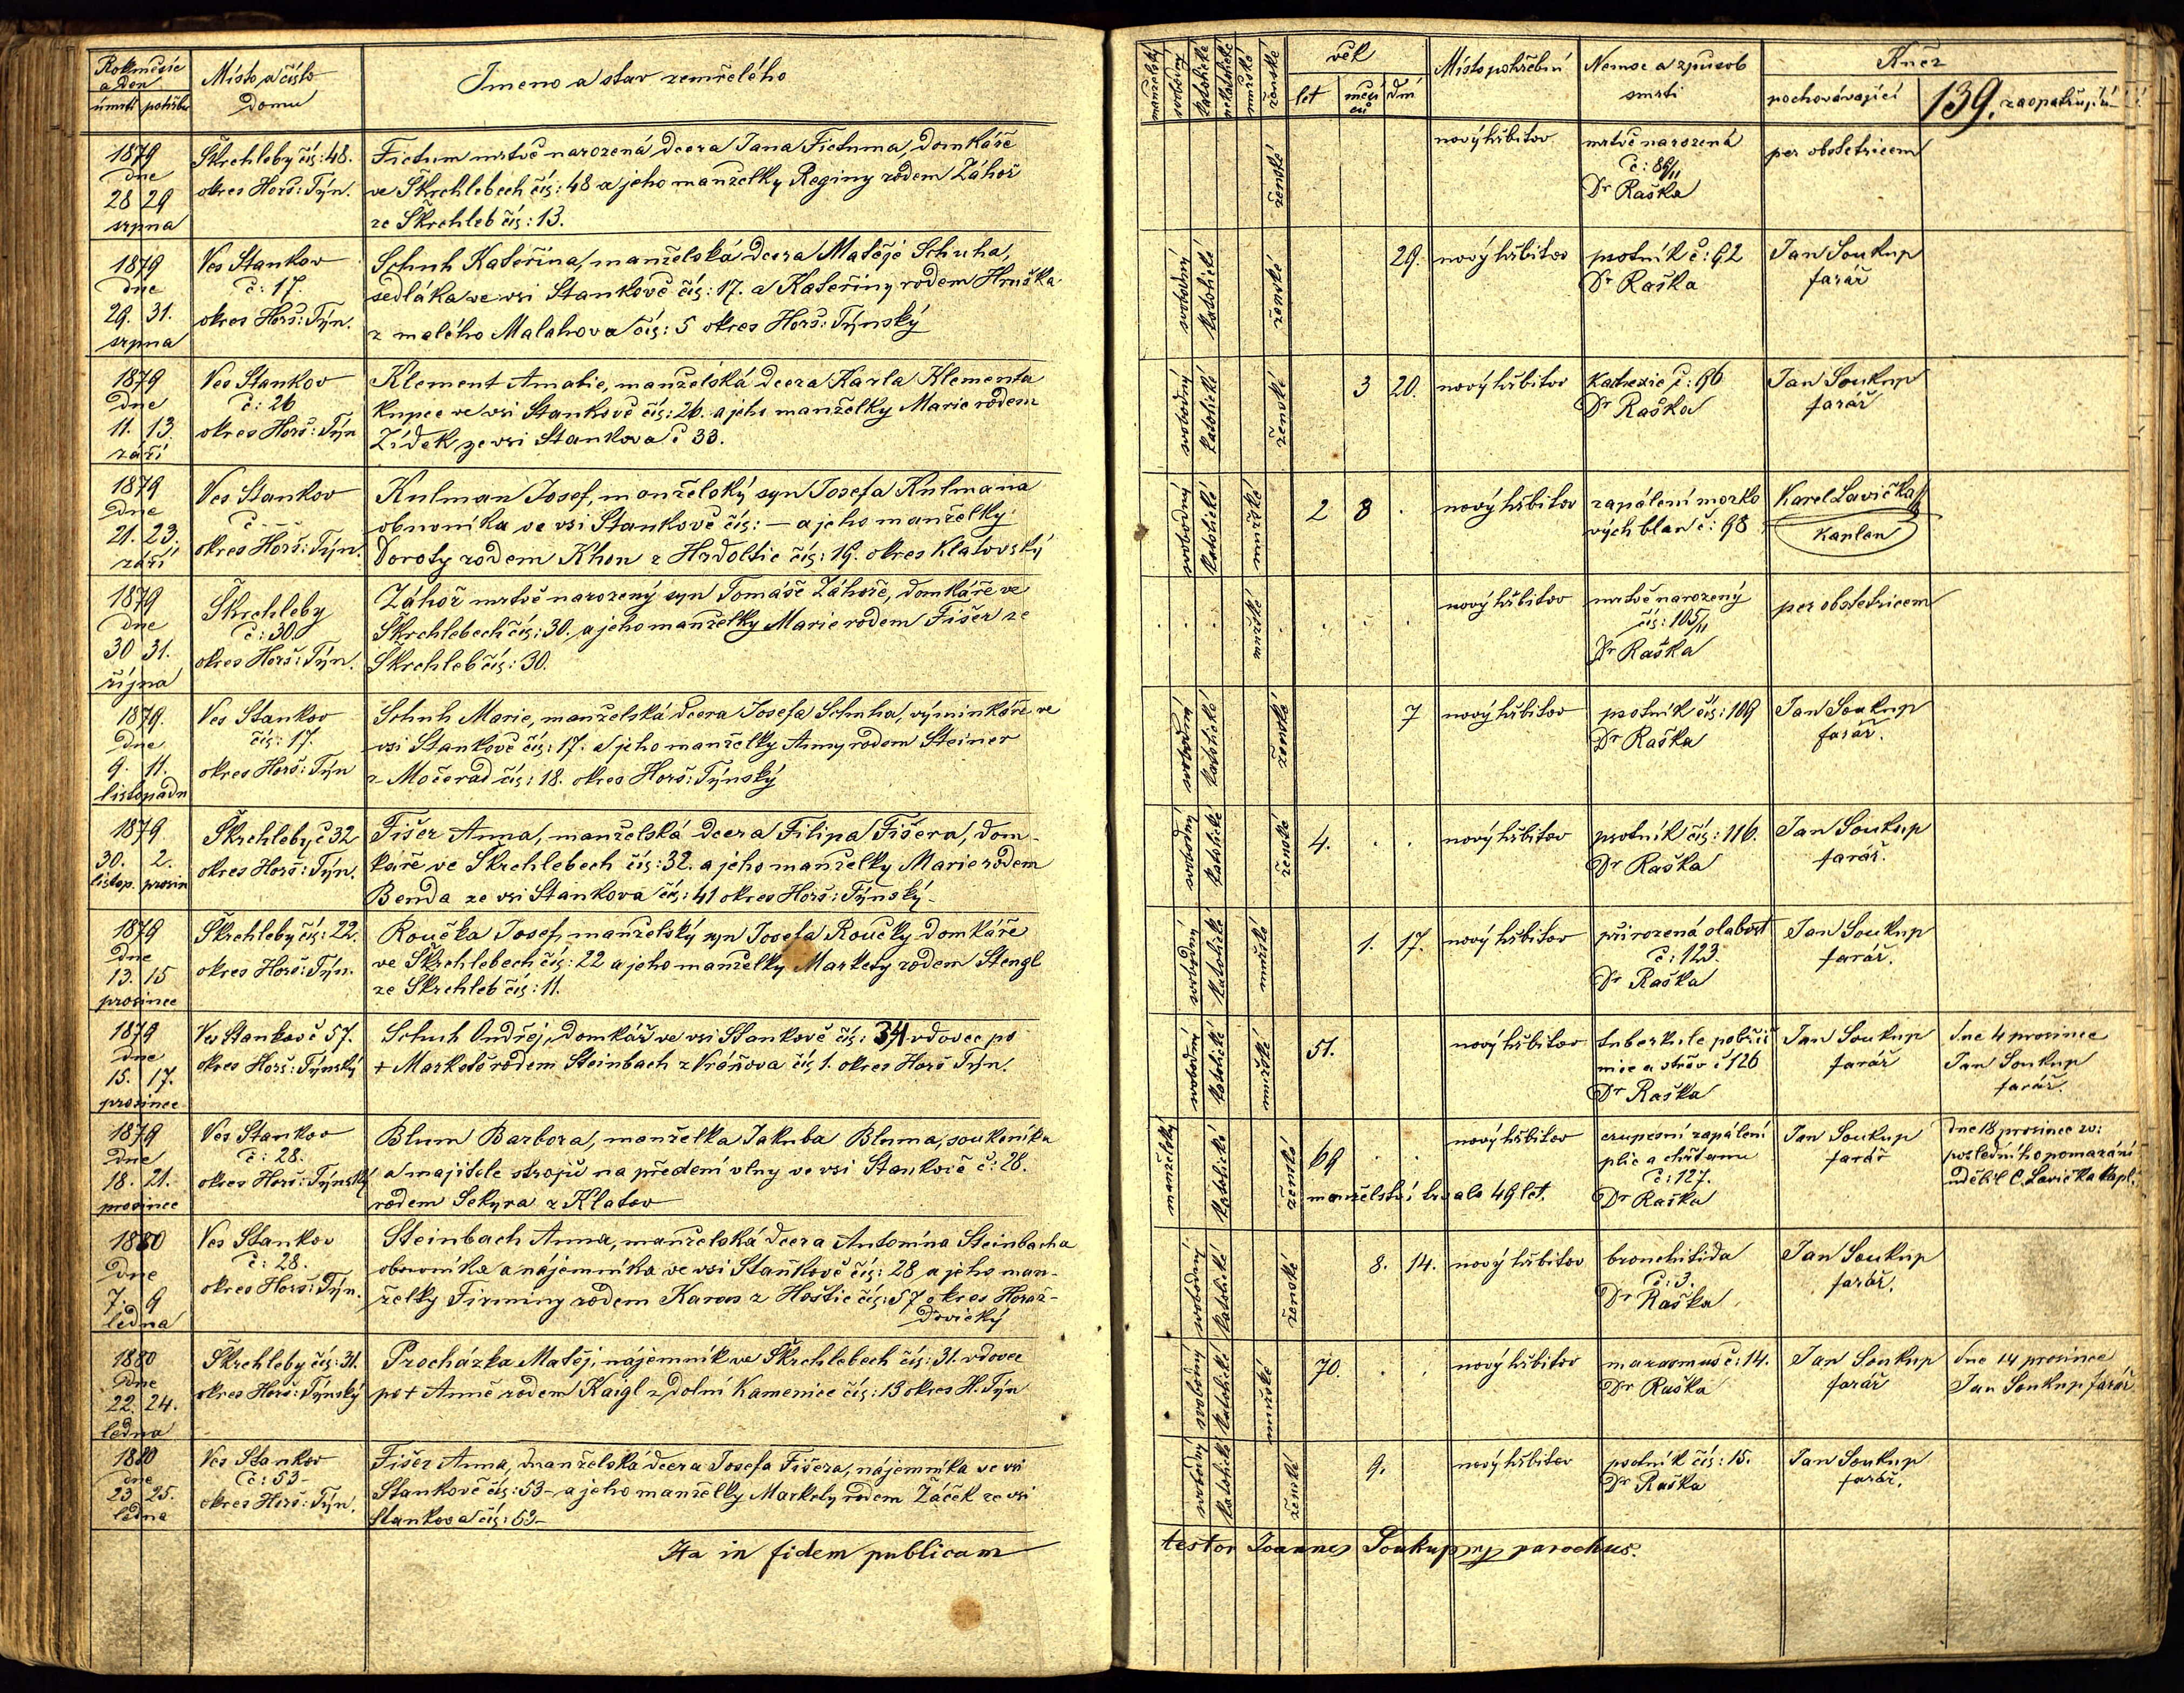 Rok měsíc
a den
úmrtí pohřbu
Místo a číslo
domu
Jmeno a stav zemřelého
1879
dne
28 29
srpna
Škrchleby čís: 48.
okres Horš: Týn.
Fictum mrtvě narozená dcera Jana Fictuma, domkáře
ve Škrchlebech čís: 48 a jeho manželky Reginy rodem Záhoř
ze Škrchleb čís: 13.
1879
dne
29. 31.
srpna
Ves Stankov
č: 17.
okres Horš: Týn.
Schuh Kateřina, manželská dcera Matěje Schuha,
sedláka ve vsi Stankově čís: 17. a Kateřiny rodem Hruška
z malého Malahova čís: 5 okres Horš: Týnský
1879
dne
11. 13.
září
Ves Stankov
č: 26
okres Horš: Týn
Klement Amalie, manželská dcera Karla Klementa
kupce ve vsi Stankově čís: 26. a jeho manželky Marie rodem
Zídek ze vsi Stankova č 33.
1879
dne
21. 23.
září
Ves Stankov
č -
okres Horš: Týn.
Kulman Josef, manželský syn Josefa Kulmana
obuvníka ve vsi Stankově čís: — a jeho manželky
Doroty rodem Khon z Hrdoltic čís: 19. okres Klatovský
1879
dne
30 31.
října
Škrchleby
č: 30.
okres Horš: Týn.
Záhoř mrtvě narozený syn Tomáše Záhoře, domkáře ve
Škrchlebech čís: 30. a jeho manželky Marie rodem Fišer ze
Škrchleb čís: 30.
1879.
dne
9. 11.
listopadu
Ves Stankov
čís: 17.
okres Horš: Týn
Schuh Marie, manželská dcera Josefa Schuha, výminkáře ve
vsi Stankově čís: 17. a jeho manželky Anny rodem Steiner
z Močerad čís: 18. okres Horš: Týnský
1879
30. 2.
listop. prosin
Škrchleby č 32
okres Horš: Týn.
Fišer Anna, manželská dcera Filipa Fišera, dom-
káře ve Škrchlebech čís: 32. a jeho manželky Marie rodem
Benda ze vsi Stankova čís: 41 okres Horš: Týnský.
1879
dne
13. 15
prosince
Škrchleby čís: 22.
okres Horš: Týn.
Roučka Josef, manželský syn Josefa Roučky domkáře
ve Škrchlebech čís: 22 a jeho manželky Markety rodem Stengl
ze Škrchleb čís: 11.
1879
dne
15. 17.
prosince
Ves Stankov č 57.
okres Horš: Týnský
Schuh Ondřej, domkář ve vsi Stankově čís: 34 vdovec po
+ Marketě rodem Steinbach z Vránova čís 1. okres Horš Týn.
1879
dne
18. 21.
prosince
Ves Stankov
č: 28.
okres Horš: Týnský
Blum Barbora, manželka Jakuba Bluma, soukeníka
a majitele strojů na předení vlny ve vsi Stankově č: 28.
rodem Sekyra z Klatov
1880
Dne
7. 9
ledna
Ves Stankov
č: 28.
okres Horš: Týn.
Steinbach Anna, manželská dcera Antonína Steinbacha
obuvníka a nájemníka ve vsi Stankově čís: 28 a jeho man-
želky Firminy rodem Karas z Hoštic čís: 57 okres Horaž-
dovický
1880
dne
22. 24.
ledna
Škrchleby čís: 31.
okres Horš: Týnský
Procházka Matěj, nájemník ve Škrchlebech čís: 31. vdovec
po + Anně rodem Kaigl z Dolní Kamenice čís: 13 okres H. Týn
1880
dne
23 25.
ledna
Ves Stankov
č: 53-
okres Horš: Týn.
Fišer Anna, manželská dcera Josefa Fišera, nájemníka ve vsi
Stankově čís: 53- a jeho manželky Markety rodem Žáček ze vsi
Stankova čís: 53-
Ita in fidem publicam
manželský
svobodný
katolické
nekatolické
mužské
ženské
věk
let
měsí
ců
dní
Místo pohřbení
Nemoc a způsob
smrti
Kněz
pochovávající
139.
zaopatřující
ženské
nový hřbitov
mrtvě narozená
č: 86/II
Dr Raška
per obstetricem
svobodný katolické ženské
29. nový hřbitov
psotník č: 92
Dr Raška
Jan Soukup
farář
svobodný katolické ženské
3 20. nový hřbitov
Kachexie č: 96
Dr Raška
Jan Soukup
farář
svobodný katolické mužské
2 8 . nový hřbitov
zapálení mozko
vých blan č: 98
Karel Lavička
Kaplan
mužské
nový hřbitov
mrtvě narozený
čís: 105/II
Dr Raška
per obstetricem
svobodný katolické ženské
7 nový hřbitov
psotník čís: 109
Dr Raška
Jan Soukup
farář.
svobodný katolické ženské
4. . . nový hřbitov
psotník čís: 116.
Dr Raška
Jan Soukup
farář.
svobodný katolické mužské
1. 17. nový hřbitov
přirozená slabost
č: 123.
Dr Raška
Jan Soukup
farář.
svobodný katolické mužské
51. nový hřbitov
tuberkule pobřiš
nice a střev č 126
Dr Raška
Jan Soukup
farář
dne 4 prosince
Jan Soukup
farář.
manželský katolické ženské
69 . . nový hřbitov
manželství trvalo 49 let.
crupesní zapálení
plic a chřtanu
č: 127.
Dr Raška
Jan Soukup
farář
dne 18 prosince sv:
posledního pomazání
udělil C. Lavička kapl.
svobodný katolické ženské
8. 14. nový hřbitov
bronchitida
č: 3.
Dr Raška
Jan Soukup
farář.
svobodný katolické mužské
70. . . nový hřbitov
marasmus č: 14.
Dr Raška
Jan Soukup
farář
dne 14 prosince
Jan Soukup farář
svobodný katolické ženské
9. nový hřbitov
psotník čís: 15.
Dr Raška
Jan Soukup
farář.
testor Joannes Soukup mp parochus.